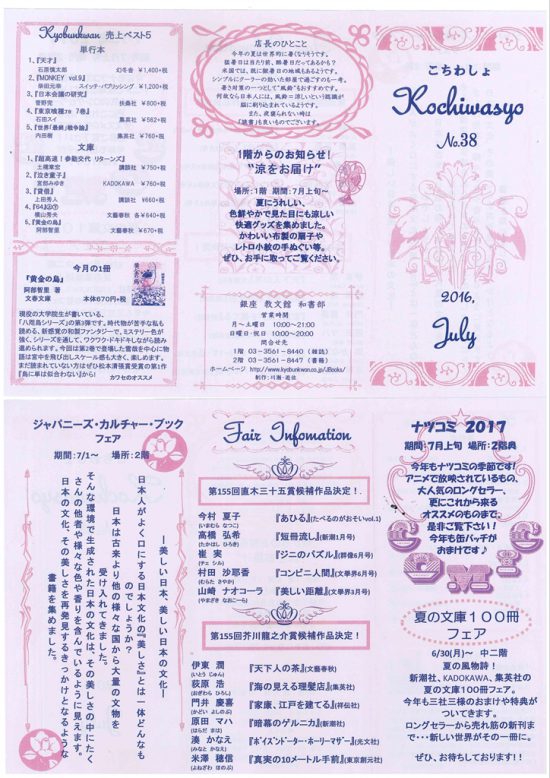 Kyobunkwan 売上ベスト5
単行本
1、『天才』
石原慎太郎 幻冬舎 ¥1,400+税
2、『MONKEY vol.9』
柴田元幸 スイッチ・パブリッシング ¥1,200+税
3、『日本会議の研究』
菅野完 扶桑社 ¥800+税
4、『東京喰種:re 7巻』
石田スイ 集英社 ¥562+税
5、『世界「最終」戦争論』
内田樹 集英社 ¥760+税
文庫
1、『超高速!参勤交代 リターンズ』
土橋章宏 講談社 ¥750+税
2、『泣き童子』
宮部みゆき KADOKAWA ¥760+税
3、『貸借』
上田秀人 講談社 ¥660+税
4、『64』㊤㊦
横山秀夫 文藝春秋 各¥640+税
5、『黄金の烏』
阿部智里 文藝春秋 ¥670+税
今月の1冊
『黄金の烏』
阿部智里 著
文春文庫 本体670円+税
現役の大学院生が書いている、
「八咫烏シリーズ」の第3弾です。時代物が苦手な私も
読める、新感覚の和製ファンタジーで、ミステリー色が
強く、シリーズを通して、ワクワク・ドキドキしながら読み
進められます。今回は第2巻で登場した雪哉を中心に物
語は宮中を飛び出しスケール感も大きく、楽しめます。
まだ読まれていない方はぜひ松本清張賞受賞の第1作
『烏に単は似合わない』から!
カワセのオススメ
店長のひとこと
今年の夏は世界的に暑くなりそうです。
猛暑日は当たり前、酷暑日だってあるかも?
米国では、既に酷暑日の地域もあるようです。
シンプルにクーラーの効いた部屋で過ごすのも一考。
暑さ対策の一つとして"風鈴"もおすすめです。
何故なら日本人には、風鈴=涼しいという認識が
脳に刷り込まれているようです。
また、炎暑ならない時は
『読書』も良いものでございます。
1階からのお知らせ!
"涼をお届け"
場所:1階 期間:7月上旬~
夏にうれしい、
色鮮やかで見た目にも涼しい
快適グッズを集めました。
かわいい布製の扇子や
レトロ小紋の手ぬぐい等。
ぜひ、お手に取ってご覧ください。
銀座 教文館 和書部
営業時間
月~土曜日 10:00~21:00
日曜日・祝日 10:00~20:00
問合せ先
1階 03-3561-8440(雑誌)
2階 03-3561-8447(書籍)
ホームページ http://www.kyobunkwan.co.jp/JBooks/
制作:川瀬・遊佐
こちわしょ
Kochiwasyo
No.38
2016,
July
ジャパニーズ・カルチャー・ブック
フェア
期間:7/1~ 場所:2階
―美しい日本、美しい日本の文化―
日本人がよく口にする日本文化の『美しさ』とは一体どんなも
のでしょうか?
日本は古来より他の様々な国から大量の文物を
受け入れてきました。
そんな環境で生成された日本の文化は、その美しさの中にたく
さんの他者や様々な色や香りを含んでいるように見えます。
日本の文化、その美しさを再発見するきっかけとなるような
書籍を集めました。
Fair Infomation
第155回直木三十五賞候補作品決定!
今村 夏子 『あひる』(たべるのがおそいvol.1)
(いまむら なつこ)
高橋 弘希 『短冊流し』(新潮1月号)
(たかはし ひろき)
崔 実 『ジニのパズル』(群像6月号)
(チェ シル)
村田 沙耶香 『コンビニ人間』(文學界6月号)
(むらた さやか)
山崎 ナオコーラ 『美しい距離』(文學界3月号)
(やまざき なおこーら)
第155回芥川龍之介賞候補作品決定!
伊東 潤 『天下人の茶』(文藝春秋)
(いとう じゅん)
荻原 浩 『海の見える理髪店』(集英社)
(おぎわら ひろし)
門井 慶喜 『家康、江戸を建てる』(祥伝社)
(かどい よしのぶ)
原田 マハ 『暗幕のゲルニカ』(新潮社)
(はらだ まは)
湊 かなえ 『ポイズンドーター・ホーリーマザー』(光文社)
(みなと かなえ)
米澤 穂信 『真実の10メートル手前』(東京創元社)
(よねざわ ほのぶ)
ナツコミ 2017
期間:7月上旬 場所:2階奥
今年もナツコミの季節です!
アニメで放映されているもの、
大人気のロングセラー、
更にこれから来る
オススメのものまで、
是非ご覧下さい!
今年も缶バッチが
おまけで♪
COMIC
夏の文庫100冊
フェア
6/30(月)~ 中二階
夏の風物詩!
新潮社、KADOKAWA、集英社の
夏の文庫100冊フェア。
今年も三社三様のおまけや特典が
ついてきます。
ロングセラーから売れ筋の新刊ま
で・・・新しい世界がその一冊に。
ぜひ、お待ちしております!!